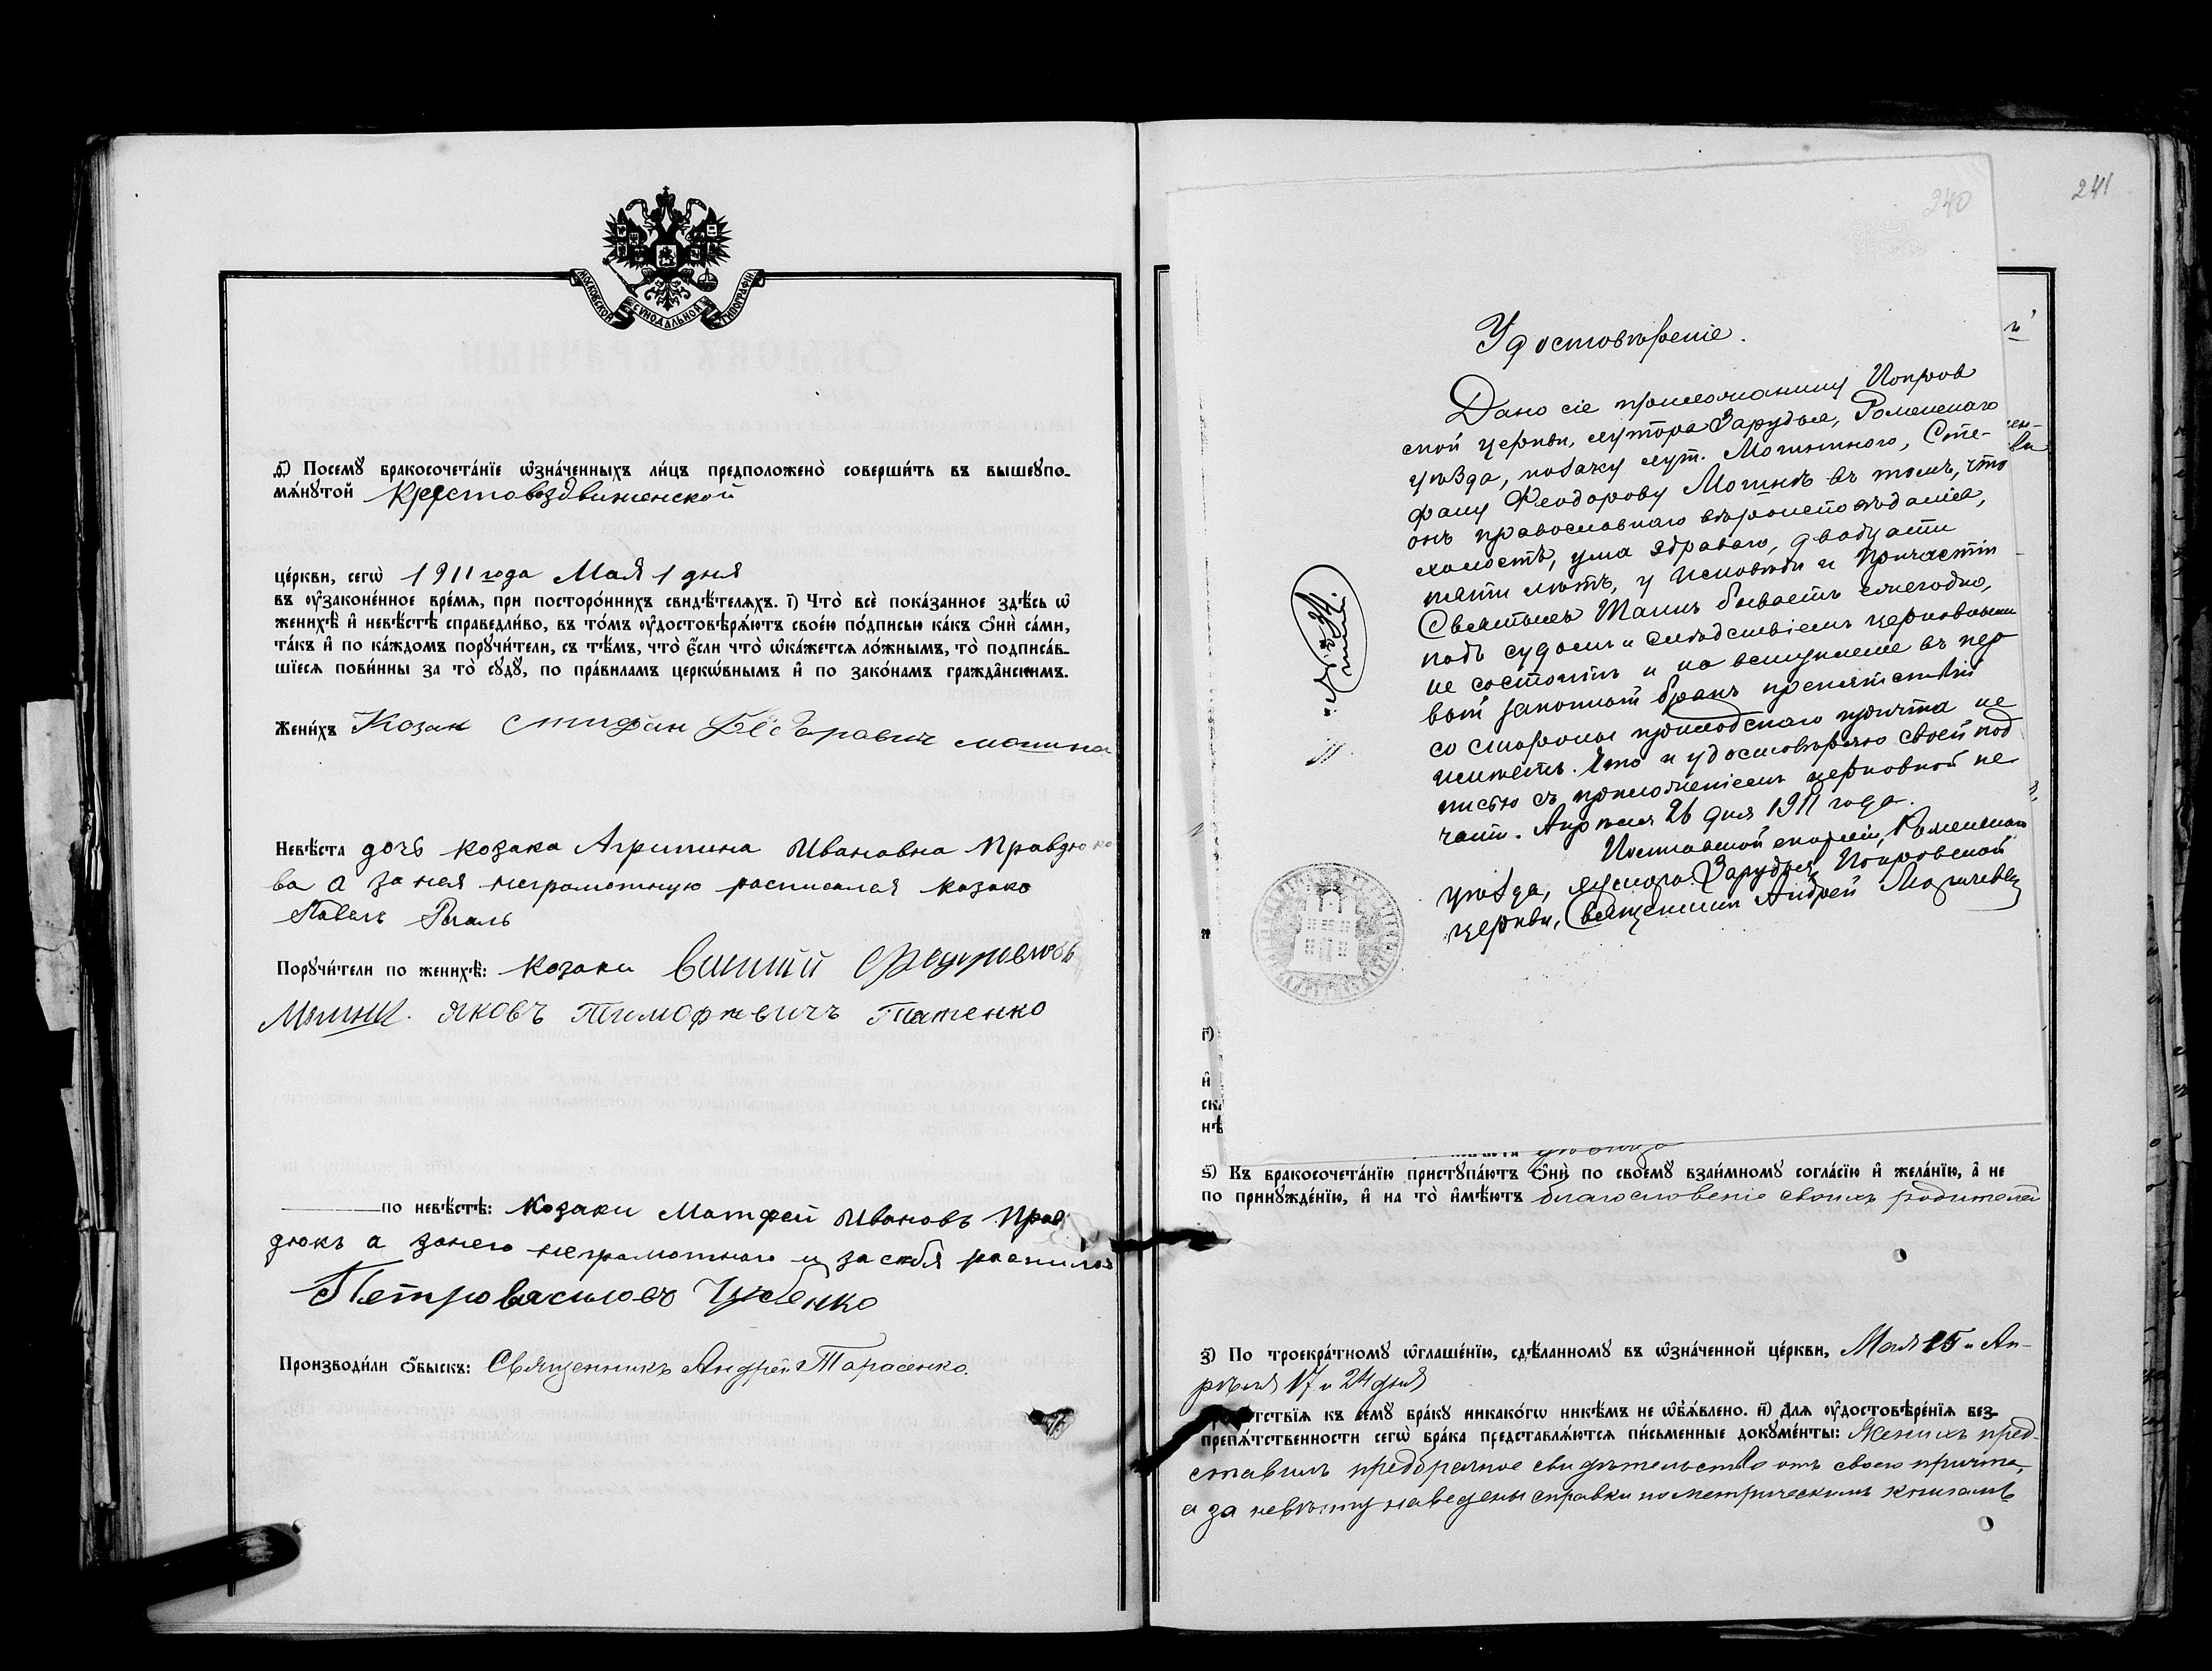 МОСКОВСКОЙ СѴНОДАЛЬНОЙ ТИПОГРАФІИ
д҃) Посемꙋ̀ бракосочета́нїе ѡ҆зна́ченныхъ ли́цъ предположено̀ соверши́ть въ вышеꙋпо-
мѧ́нꙋтой Крестовоздвиженской
це́ркви, сегѡ̀ 1911 года Мая 1 дня
въ ᲂу҆законе́нное вре́мѧ, при посторо́ннихъ свидѣ́телѧхъ. і҃) Что̀ всѐ пока́занное здѣ́сь ѡ҆
женихѣ̀ и҆ невѣ́стѣ справедли́во, въ то́мъ ᲂу҆достовѣрѧ́ютъ свое́ю по́дписью ка́къ ѻ҆нѝ са́ми,
та́къ и҆ по ка́ждомъ порꙋчи́тели, съ тѣ́мъ, что̀ є҆́сли что̀ ѡ҆ка́жетсѧ ло́жнымъ, то̀ подписа́в-
шїесѧ пови́нны за то̀ сꙋдꙋ̀, по пра́виламъ церкѡ́внымъ и҆ по зако́намъ гражда̑нскимъ.
Жени́хъ Козак Стифан Феодрович могина
Невѣ́ста дочь козака Агрипина Ивановна Правдюко
ва а за нея неграмотную росписался козако
Павелъ
Порꙋчи́тели по женихѣ̀: Козаки
Яковъ Тимофѣевичъ Татенко
по невѣ́стѣ: Козаки Матфей Ивановъ Прав
дюкъ а занего неграмотного и засебя
Петро василовъ
Производи́ли ѻ҆́быскъ: Священникъ Андрей Тарасенко.
240
241
Удостовѣреніе.
Дано сіе прихожанину Покров
ской церкви, хутора Зарудья, Роменскаго
уѣзда, козаку хут. Могитного, Сте-
фану Феодорову Могинѣ въ томъ, что
онъ православнаго вѣроисповѣданія,
холостъ, ума здраваго, двадцати
пяти лѣтъ, у Исповѣди и Причастія
Святыхъ Таинъ бываетъ ежегодно,
подъ судомъ и слѣдствіемъ церковнымъ
не состоитъ и на вступленіе въ пер
вый законный бракъ препятствій
со стороны приходскаго причта не
имѣетъ. Что и удостовѣряю своей под
писью съ приложеніемъ церковной пе
чати. Апрѣля 26 дня 1911 года.
Полтавской епархіи, Роменскаго
уѣзда, хутора Зарудья Покровской
церкви, Священникъ Андрей
г҃)
и҆
ска
нѣ
ѕ҃) Къ бракосочета́нїю пристꙋпа́ютъ ѻ҆нѝ по своемꙋ̀ взаи́мномꙋ согла́сїю и҆ жела́нїю, а҆ не
по принꙋжде́нїю, и҆ на то̀ и҆мѣ́ютъ благословеніе своихъ родителей
з҃) По троекра́тномꙋ ѡ҆глаше́нїю, сдѣ́ланномꙋ въ ѡ҆зна́ченной це́ркви, Мая 15 и Ап-
рѣля 17 и 24 дня
тствїѧ къ семꙋ̀ бра́кꙋ никако́гѡ никѣ́мъ не ѡ҆б̾ѧ́влено. и҃) Для ᲂу҆достовѣре́нїѧ без-
препѧ́тственности сегѡ̀ бра́ка представлѧ́ютсѧ пи́сьменные докꙋме́нты: Женихъ пред-
ставилъ предбрачное свидѣтельство отъ своего причта,
а за невѣсту наведены справки по метрическимъ книгамъ